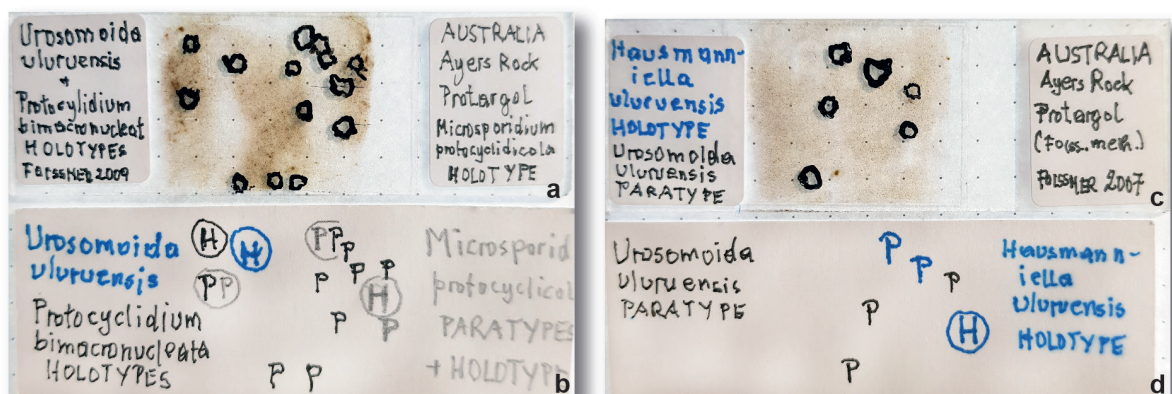 Urosomoida
uluruensis
+
Protocylidium
bimacronucleat
HOLOTYPES
FOISSNER 2009
AUSTRALIA
Ayers Rock
Protargol
Microsporidium
protocyclidicola
HOLOTYPE
a
Urosomoida
uluruensis
Protocyclidium
bimacronucleata
HOLOTYPES
H H P P P
P P P
P P H
P P
P P
Microsporid
protocyclicol
PARATYPES
+ HOLOTYPE
b
Hausmann-
iella
uluruensis
HOLOTYPE
Urosomoida
uluruensis
PARATYPE
AUSTRALIA
Ayers Rock
Protargol
(Foiss. meth.)
FOISSNER 2007
c
Urosomoida
uluruensis
PARATYPE
P
P P
P H
P
Hausmann-
iella
uluruensis
HOLOTYPE
d